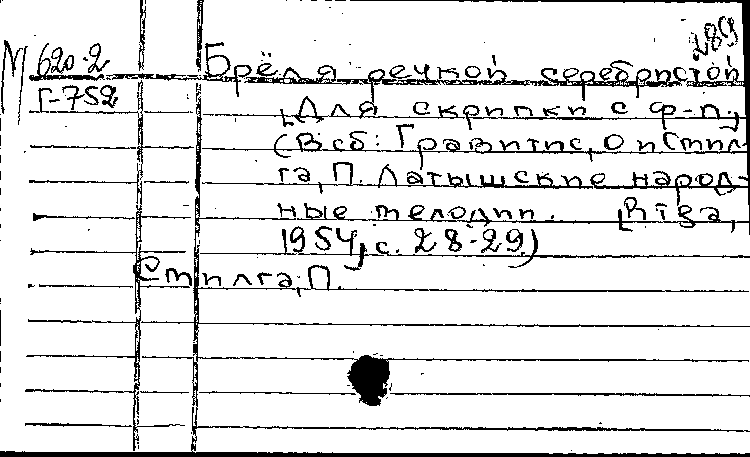 289
М 620-2
Г-752
Брёл я речкой серебристой
[Для скрипки с ф-п.,
(В сб: Гравитис, О и Стил-
га, П. Латышские народ-
ные мелодии. [Rīga,
1954, с. 28-29)
Стилга, П.